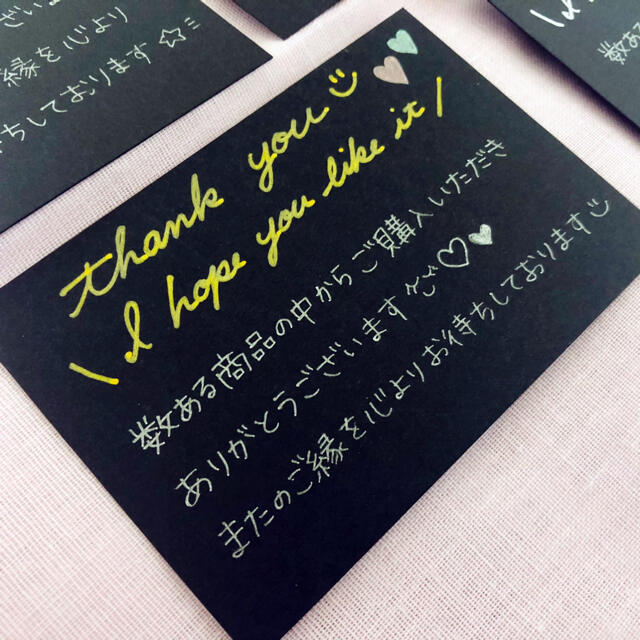 thank you
\ I hope you like it /
数ある商品の中からご購入いただき
ありがとうございます
またのご縁を心よりお待ちしております
ご縁を心より
待ちしております
数あ